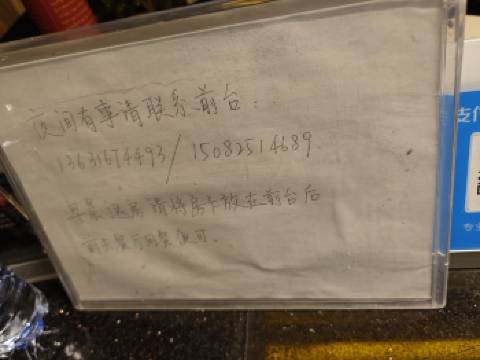 夜间有事请联系前台:
13631674493/15082514689
早晨退房请将房卡放在前台后
前去餐厅用餐即可.
支付
专业